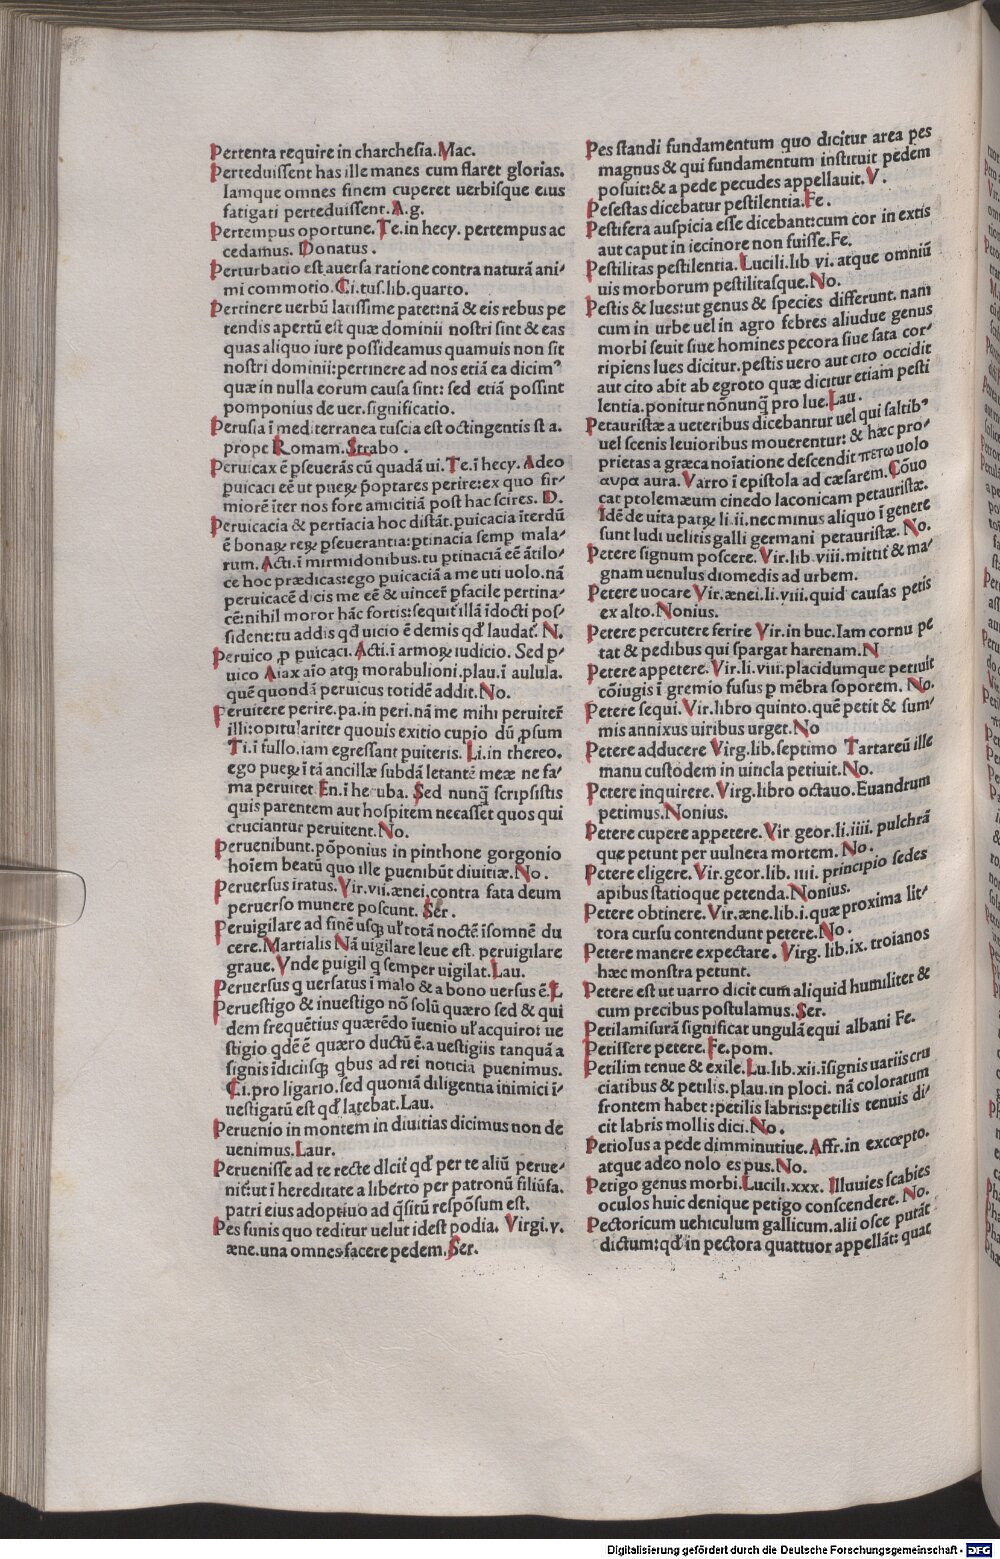 Pertenta require in charchesia. Mac.
Perteduissent has ille manes cum flaret glorias.
Iamque omnes finem cuperet uerbisque eius
fatigati perteduissent. A.g.
Pertempus oportune. Te.in hecy. pertempus ac
cedamus. Donatus .
Perturbatio est auersa ratione contra naturã ani/
mi commotio. Ci.tus.lib.quarto.
Pertinere uerbũ latissime patet:nã & eis rebus pe
tendis apertũ est quæ dominii nostri sint & eas
quas aliquo iure possideamus quamuis non sit
nostri dominii:pertinere ad nos etiã ea dicimꝰ
quæ in nulla eorum causa sint: sed etiã possint
pomponius de uer.significatio.
Perusia ĩ mediterranea tuscia est octingentis st a.
prope Romam. Strabo .
Peruicax ẽ ꝑseuerãs cũ quadã ui. Te.ĩ hecy. Adeo
ꝑuicaci eẽ ut pueꝝ ꝓptares perire:ex quo fir/
miorẽ ĩter nos fore amicitiã post hac scires. D.
Peruicacia & pertiacia hoc distãt.ꝑuicacia ĩterdũ
ẽ bonaꝝ reꝝ ꝑseuerantia:ꝑtinacia semꝑ mala/
rum. Acti.ĩ mirmidonibus.tu ꝑtinaciã eẽ ãtilo/
ce hoc prædicas:ego ꝑuicaciã a me uti uolo.nã
peruicacẽ dicis me eẽ & uinceř ꝑfacile pertina/
cẽ:nihil moror hãc fortis:sequiť illã ĩdocti pos/
sident:tu addis qđ uicio ẽ demis qđ laudať. N.
Peruico ꝓ ꝑuicaci. Acti.ĩ armoꝝ iudicio. Sed ꝑ/
uico Aiax aĩo atqꝫ morabulioni.plau.ĩ aulula.
quẽ quondã peruicus totidẽ addit. No.
Peruitere perire.pa.in peri.nã me mihi peruiteř
illi:opitulariter quouis exitio cupio dũ ꝓsum
Ti.ĩ fullo.iam egressant ꝑuiteris. Li.in thereo.
ego pueꝝ ĩ tã ancillæ subdã letantẽ meæ ne fa/
ma peruitet. En.ĩ hecuba. Sed nunq̃ scripsistis
quis parentem aut hospitem necasset quos qui
cruciantur peruitent. No.
Peruenibunt.põponius in pinthone gorgonio
hoĩem beatũ quo ille ꝑuenibũt diuitiæ. No .
Peruersus iratus. Vir.vii.ænei.contra fata deum
peruerso munere poscunt. Ser .
Peruigilare ad finẽ usqꝫ uľ totã noctẽ ĩsomnẽ du
cere. Martialis Nã uigilare leue est. peruigilare
graue. Vnde ꝑuigil q semper uigilat. Lau.
Peruersus q uersatus ĩ malo & a bono uersus ẽ. L
Peruestigo & inuestigo nõ solũ quæro sed & qui
dem frequẽtius quærẽdo ĩuenio uľ acquiro: ue
stigio qdẽ ẽ quæro ductũ ẽ.a uestigiis tanquã a
signis ĩdiciisqꝫ qbus ad rei noticiã ꝑuenimus.
Ci.pro ligario.sed quoniã diligentia inimici ĩ/
uestigatũ est qđ latebat. Lau.
Peruenio in montem in diuitias dicimus non de
uenimus. Laur.
Peruenisse ad te recte dicit qđ per te aliũ perue/
nit:ut ĩ hereditate a liberto per patronũ filiũfa.
patri eius adoptiuo ad q̃sitũ respõsum est.
Pes funis quo teditur uelut idest podia. Virgi.v.
æne.una omnes facere pedem. Ser.
Pes standi fundamentum quo dicitur area pes
magnus & qui fundamentum instituit pedem
posuit:& a pede pecudes appellauit. V .
Pesestas dicebatur pestilentia. Fe .
Pestifera auspicia esse dicebant:cum cor in extis
aut caput in iecinore non fuisse. Fe.
Pestilitas pestilentia. Lucili.lib vi. atque omniũ
uis morborum pestilitasque. No.
Pestis & lues:ut genus & species differunt. nam
cum in urbe uel in agro febres aliudue genus
morbi seuit siue homines pecora siue sata cor/
ripiens lues dicitur.pestis uero aut cito occidit
aut cito abit ab egroto quæ dicitur etiam pesti
lentia.ponitur nõnunq̃ pro lue. Lau .
Petauristæ a ueteribus dicebantur uel qui saltibꝰ
uel scenis leuioribus mouerentur: & hæc pro/
prietas a græca noĩatione descendit πετω uolo
αυρα aura. Varro ĩ epistola ad cæsarem. Cõuo
cat ptolemæum cinedo laconicam petauristæ.
Idẽ de uita patꝝ li.ii.nec minus aliquo ĩ genere
sunt ludi uelitis galli germani petauristæ. No.
Petere signum poscere. Vir.lib.viii.mittiť & ma/
gnam uenulus diomedis ad urbem.
Petere uocare Vir.ænei.li.viii.quid causas petis
ex alto. Nonius.
Petere percutere ferire Vir.in buc.Iam cornu pe
tat & pedibus qui spargat harenam. N
Petere appetere. Vir.li.viii.placidumque petiuit
cõiugis ĩ gremio fusus ꝑ mẽbra soporem. No.
Petere sequi. Vir.libro quinto.quẽ petit & sum/
mis annixus uiribus urget. No
Petere adducere Virg.lib.septimo Tartareũ ille
manu custodem in uincla petiuit. No.
Petere inquirere. Virg.libro octauo. Euandrum
petimus. Nonius.
Petere cupere appetere. Vir geor.li.iiii. pulchrã
que petunt per uulnera mortem. No .
Petere eligere. Vir.geor.lib. iiii. principio sedes
apibus statioque petenda. Nonius.
Petere obtinere. Vir.æne.lib.i.quæ proxima lit/
tora cursu contendunt petere. No .
Petere manere expectare . Virg. lib.ix. troianos
hæc monstra petunt.
Petere est ut uarro dicit cum aliquid humiliter &
cum precibus postulamus. Ser.
Petilamisurã significat ungulã equi albani Fe.
Petissere petere. Fe.pom.
Petilim tenue & exile. Lu.lib.xii.ĩsignis uariis cru
ciatibus & petilis.plau.in ploci. nã coloratum
frontem habet:petilis labris:petilis tenuis di/
cit labris mollis dici. No .
Petiolus a pede dimminutiue. Affr.in excœpto.
atque adeo nolo es pus. No.
Petigo genus morbi. Lucili.xxx. Illuuies scabies
oculos huic denique petigo conscendere. No.
Pectoricum uehiculum gallicum.alii osce putãt
dictum:qđ in pectora quattuor appellãt: quat
Digitalisierung gefördert durch die Deutsche Forschungsgemeinschaft - DFG